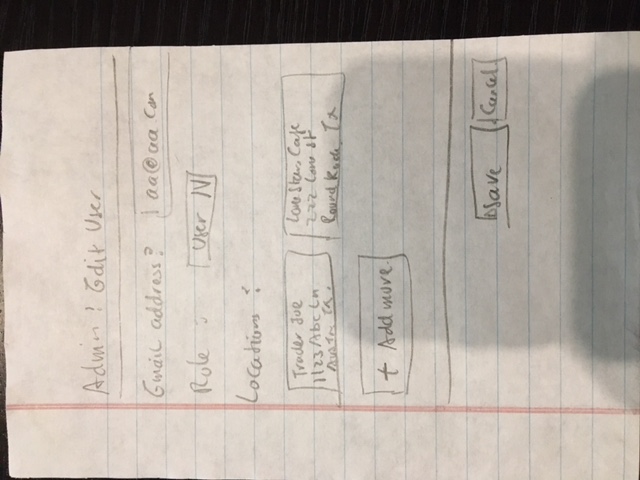 Admin: Edit User
Email address: aa@aa.com
Role : User V
Locations :
Trader Joe
1123 Abc Ln
Austin, Tx.
Lone Star, Cafe
222 Lone St
Round Rock, Tx
+ Add more.
Save
Cancel